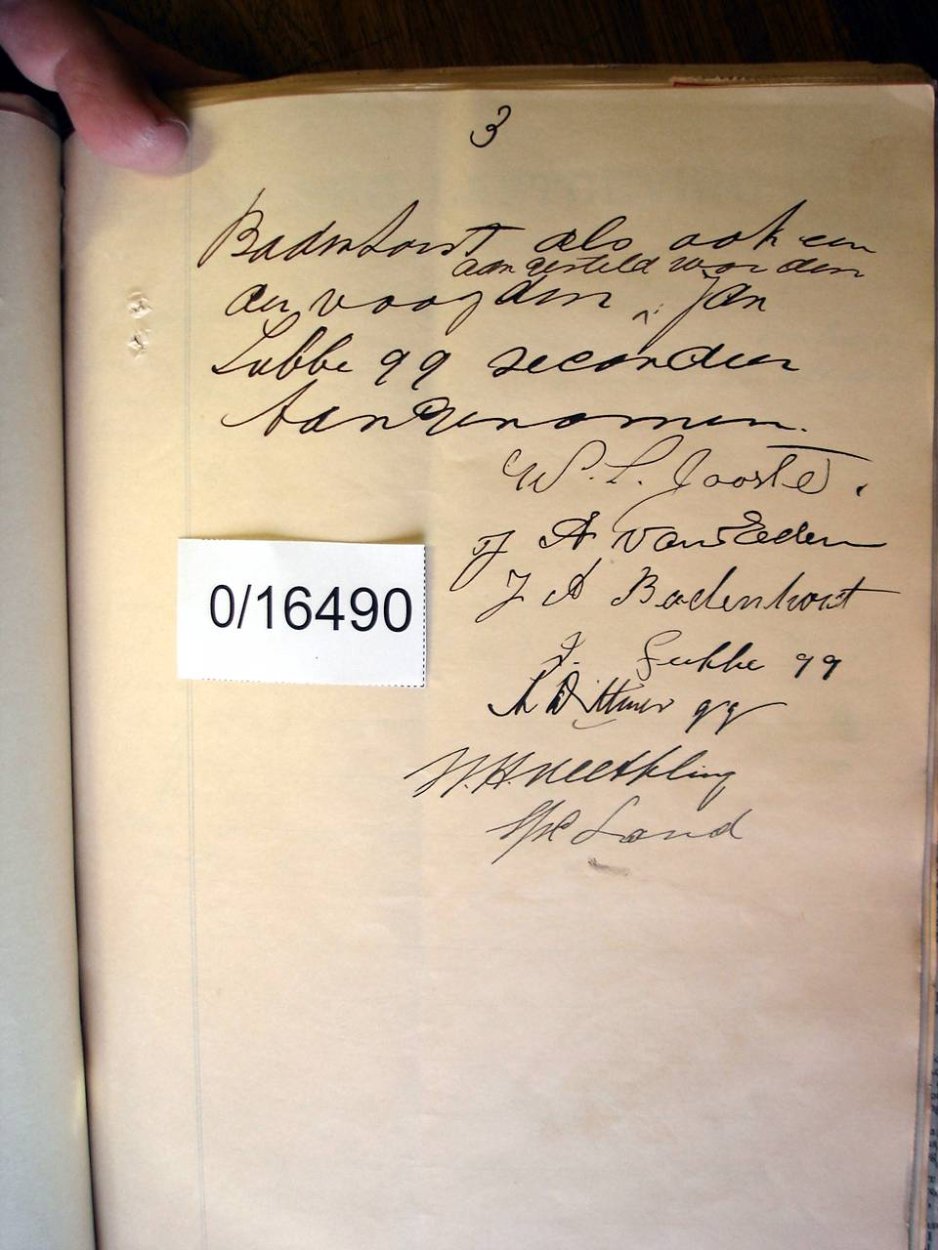 3
Badenhorst als ook een
aangesteld worden
der voogden ^ Jan
Lubbe qq secondeer
Aangenomen.
W. L. Jooste.
J A van Eeden
J A Badenhorst
0/16490
J. Lubbe qq
Dittmer qq
W. H. Neethling
Land